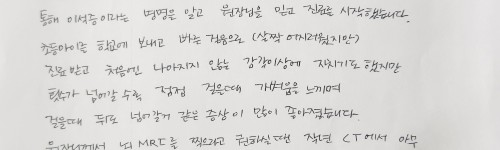 통해 이석증이라는 병명을 알고 원장님을 믿고 진료를 시작했습니다.
초등아이를 학교에 보내고 버는 걸음으로 (살짝 어지러웠지만)
진료받고 처음엔 나아지지 않는 감각이상에 지치기도 했지만
횟수가 넘어갈 수록 점점 걸을때 가벼움을 느끼며
걸을때 뒤로 넘어갈거 같은 증상이 많이 좋아졌습니다.
원장님께서 뇌 MRI를 찍으라고 권하실때 작년 CT에서 아무